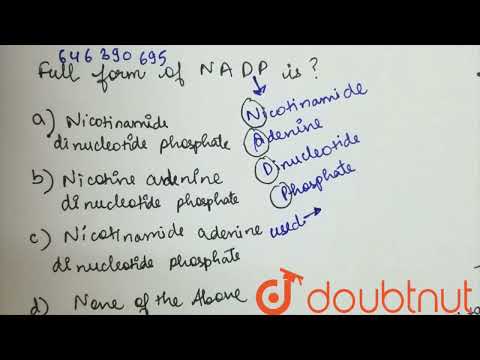 646390695
Full form of NADP is?
a) Nicotinamide
dinucleotide phosphate
b) Nicotine adenine
dinucleotide phosphate
c) Nicotinamide adenine
dinucleotide phosphate
d) None of the Above
Nicotinamide
Adenine
Dinucleotide
Phosphate
used
doubtnut